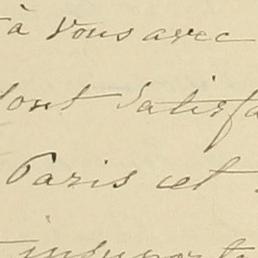 à vous avec
dont satisfa
Paris cet